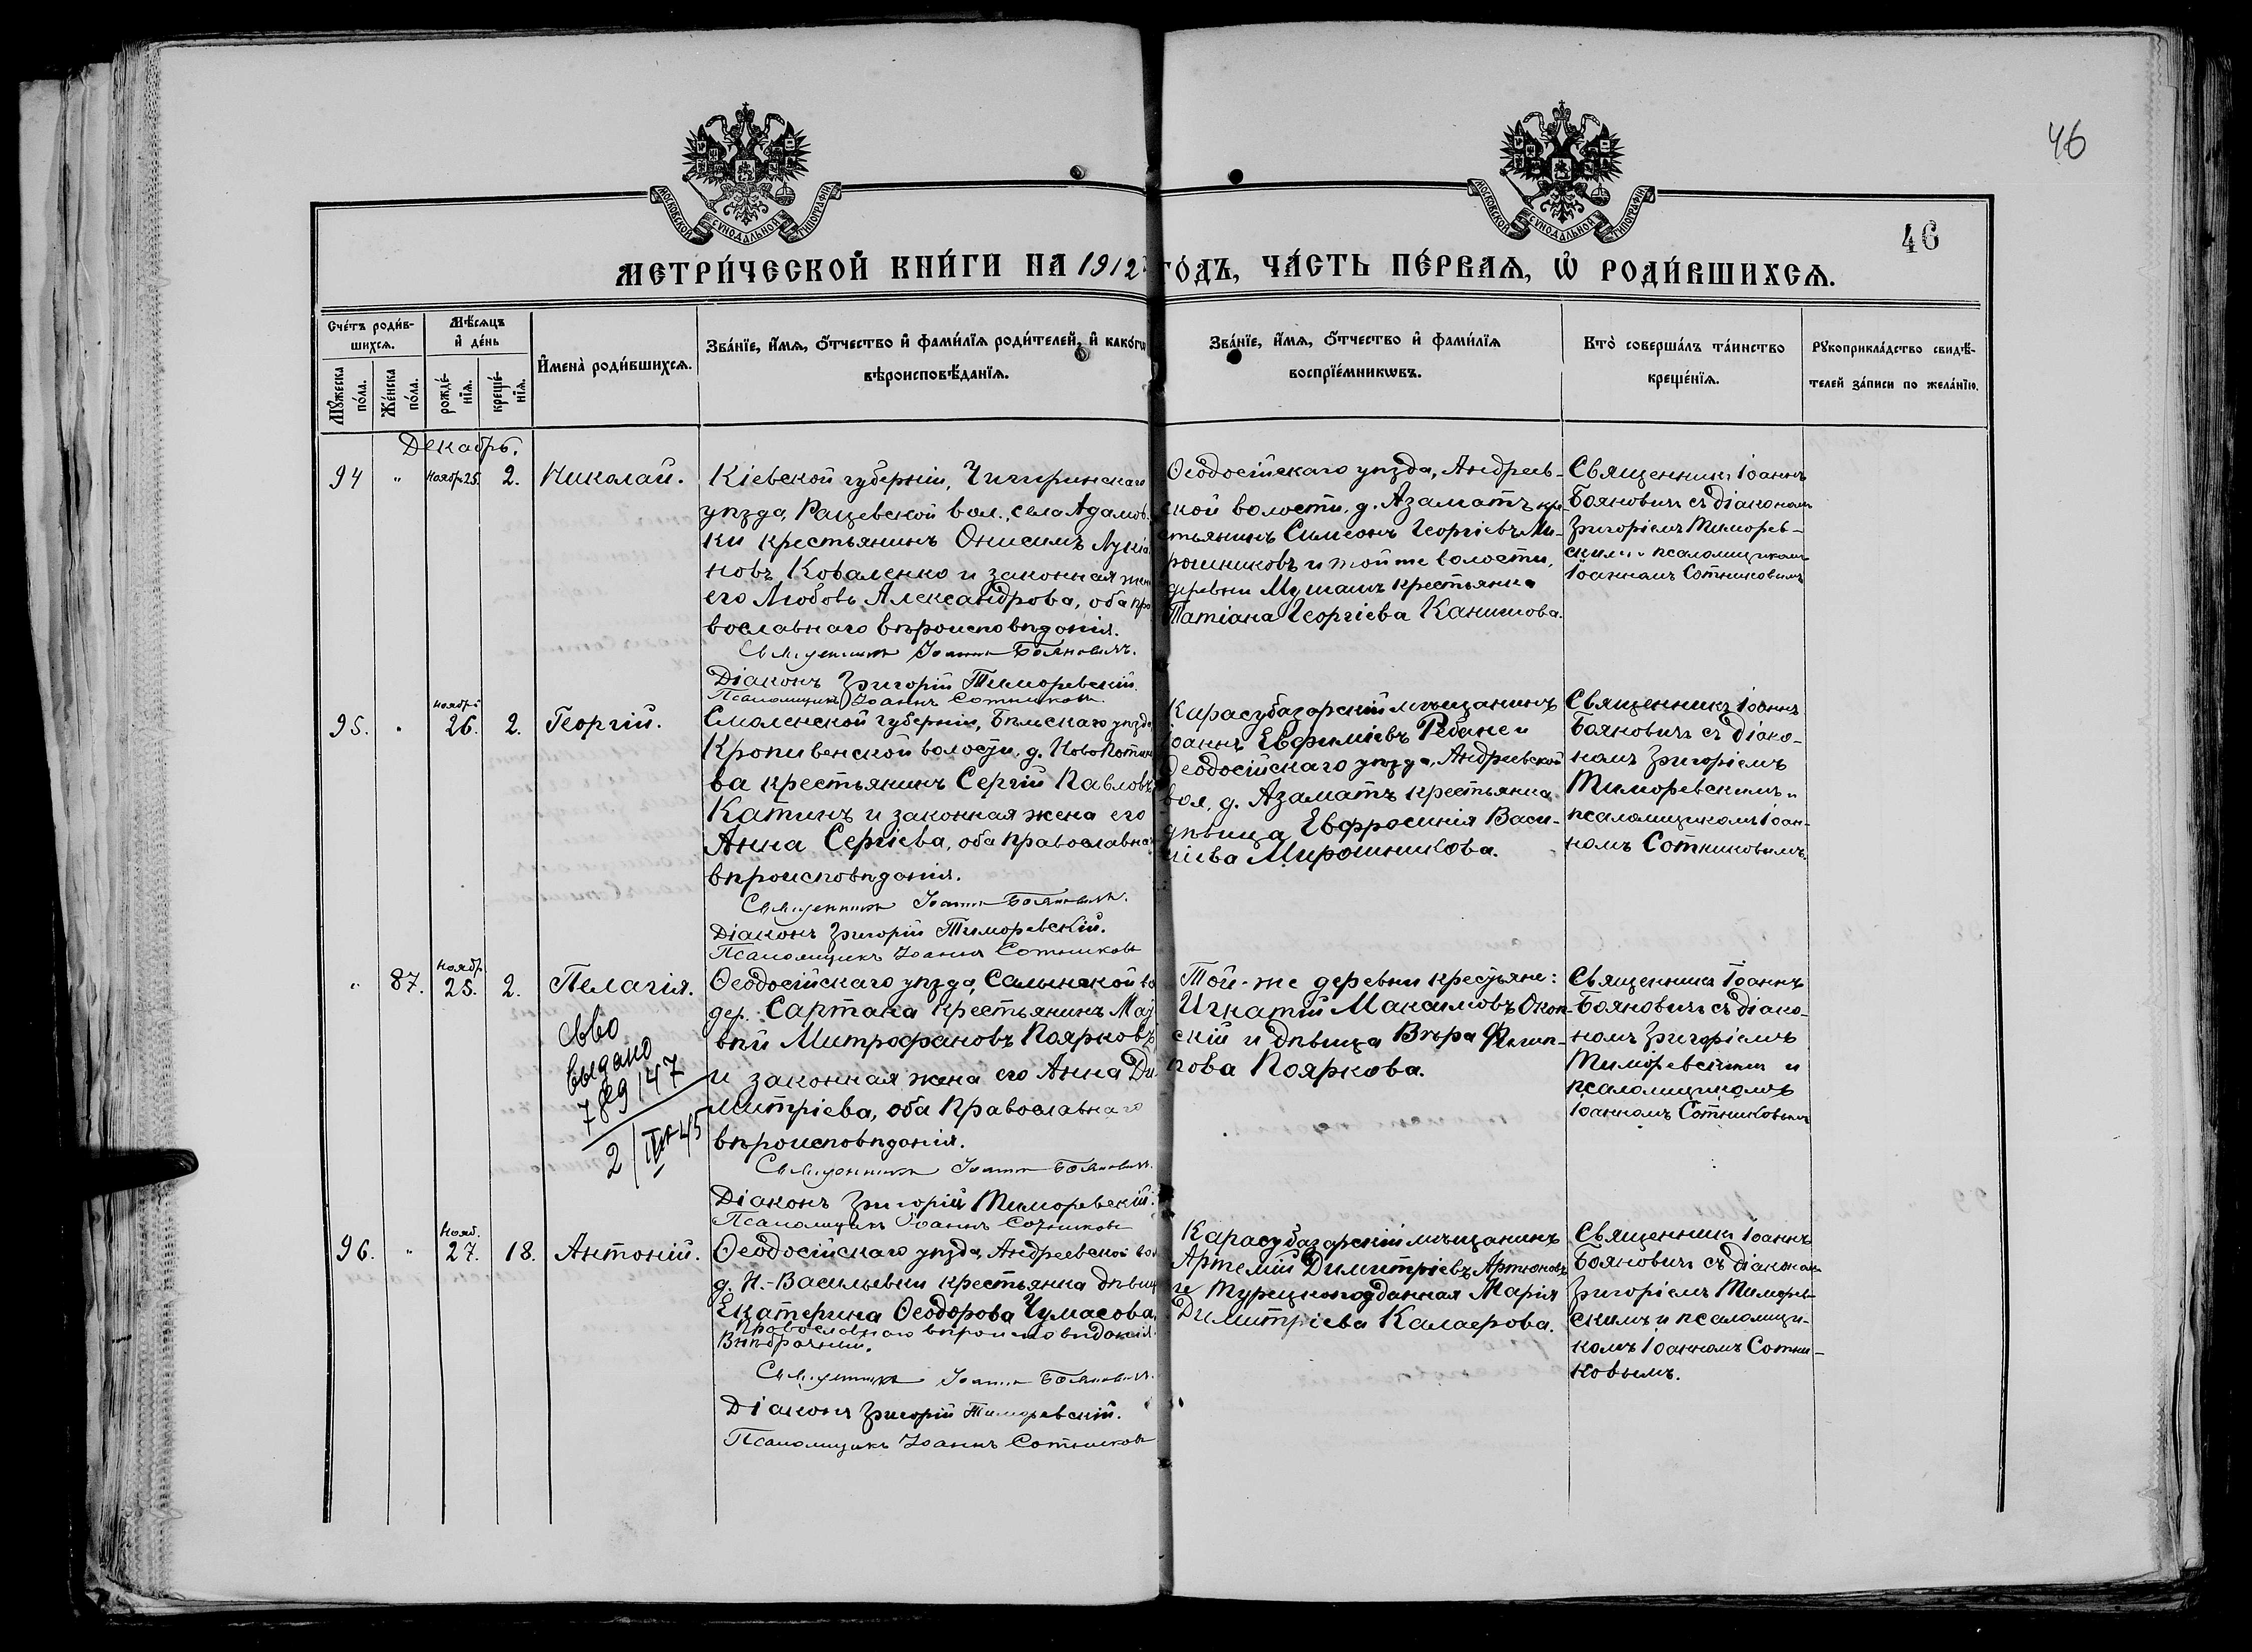 46
46
МОСКОВСКОЙ СѴНОДАЛЬНОЙ ТИПОГРАФІИ
МОСКОВСКОЙ СѴНОДАЛЬНОЙ ТИПОГРАФІИ
МЕТРИ́ЧЕСКОЙ КНИ́ГИ НА 1912 ГО́ДЪ, ЧА́СТЬ ПЕ́РВАѦ, Ѡ҆ РОДИ́ВШИХСѦ.
Сче́тъ роди́в-
шихсѧ.
Мѣ́сѧцъ
и҆ де́нь
Мꙋ́жеска
по́ла.
Же́нска
по́ла.
рожде́-
нїѧ.
креще́-
нїѧ.
И҆мена̀ роди́вшихсѧ.
Зва́нїе, и҆́мѧ, ѻ҆́тчество и҆ фами́лїѧ роди́телей, и҆ како́гѡ
вѣроисповѣ́данїѧ.
Зва́нїе, и҆́мѧ, ѻ҆́тчество и҆ фами́лїѧ
воспрїе́мникѡвъ.
Кто̀ соверша́лъ та́инство
креще́нїѧ.
Рꙋкоприкла́дство свидѣ́-
телей за́писи по жела́нїю.
Декабрь.
94 " Ноябр. 25. 2. Николай.
Кіевской губерніи, Чигиринскаго
уѣзда, Рацевской вол., села Адамов-
ки крестьянинъ Онисимъ Лукіа
новъ Коваленко и законная жен
его Любовь Александрова, оба пра
вославнаго вѣроисповѣданія.
Священникъ Іоаннъ Бояновичъ.
Діаконъ Григорій Тиморевскій.
Псаломщикъ Іоаннъ Сотниковъ
Ѳеодосійскаго уѣзда, Андреев-
ской волости, д. Азаматъ кре-
стьянинъ Симеонъ Георгіевъ Ми-
рошниковъ и той же волости,
деревни Мушашъ крестьянка
Татіана Георгіева Канишова.
Священникъ Іоаннъ
Бояновичъ съ діакономъ
Григоріемъ Тиморев-
скимъ и псаломщикомъ
Іоанномъ Сотниковымъ
95. " Ноябрь 26. 2. Георгій.
Смоленской губерніи, Бѣльскаго уѣзда,
Кропивенской волости, д.
ва крестьянинъ Сергій Павловъ
Катинъ и законная жена его
Анна Сергіева, оба православна
вѣроисповѣданія.
Священникъ Іоаннъ Бояновичъ.
Діаконъ Григорій Тиморевскій.
Псаломщикъ Іоаннъ Сотниковъ
Карасубазарскій мѣщанинъ
Іоаннъ Евфиміевъ Рѣбане и
Ѳеодосійскаго уѣзда, Андреевской
вол. д. Азаматъ крестьянка
дѣвица Евфросинія Васи-
ліева Мирошникова.
Священникъ Іоаннъ
Бояновичъ съ діако-
номъ Григоріемъ
Тиморевскимъ и
псаломщикомъ Іоан-
номъ Сотниковымъ.
" 87. Ноябр. 25. 2. Пелагія.
Св-во
выдано
789/47
2/IV 45
Ѳеодосійскаго уѣзда, Салынской во
дер. Сартана крестьянинъ Мат
вѣй Митрофановъ Поярковъ
и законная жена его Анна Ди-
митріева, оба православнаго
вѣроисповѣданія.
Священникъ Іоаннъ Бояновичъ.
Діаконъ Григорій Тиморевскій.
Псаломщикъ Іоаннъ Сотниковъ
Той-же деревни крестьяне:
Игнатій Максимовъ Окон-
скій и дѣвица Вѣра Филип-
пова Пояркова.
Священникъ Іоаннъ
Бояновичъ съ діако-
номъ Григоріемъ
Тиморевскимъ и
псаломщикомъ
Іоанномъ Сотниковымъ
96. " Нояб. 27. 18. Антоній.
Ѳеодосійскаго уѣзда, Андреевской вол
д. Н.-Васильевки крестьянка дѣвица
Екатерина Ѳеодорова Чумасова,
православнаго вѣроисповѣданія.
Внѣбрачный.
Священникъ Іоаннъ Бояновичъ.
Діаконъ Григорій Тиморевскій.
Псаломщикъ Іоаннъ Сотниковъ
Карасубазарскій мѣщанинъ
Артемій Димитріевъ Артюновъ
и турецкоподданная Марія
Димитріева Калаерова.
Священникъ Іоаннъ
Бояновичъ съ діаконом
Григоріемъ Тиморев-
скимъ и псаломщи-
комъ Іоанномъ Сотни-
ковымъ.